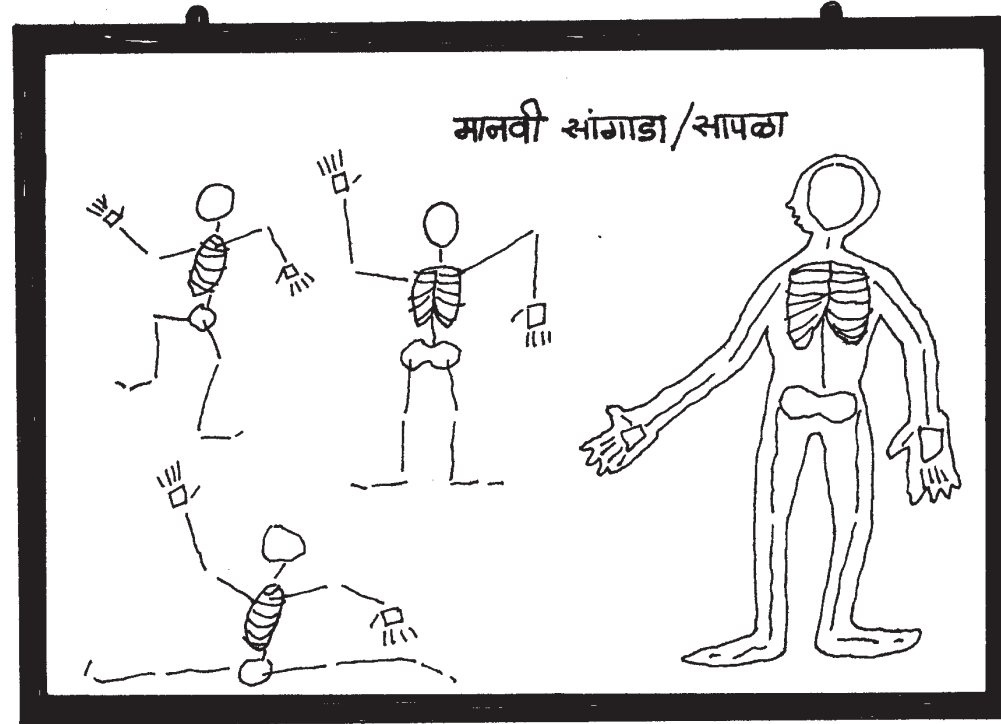 मानवी सांगाडा/सापळा